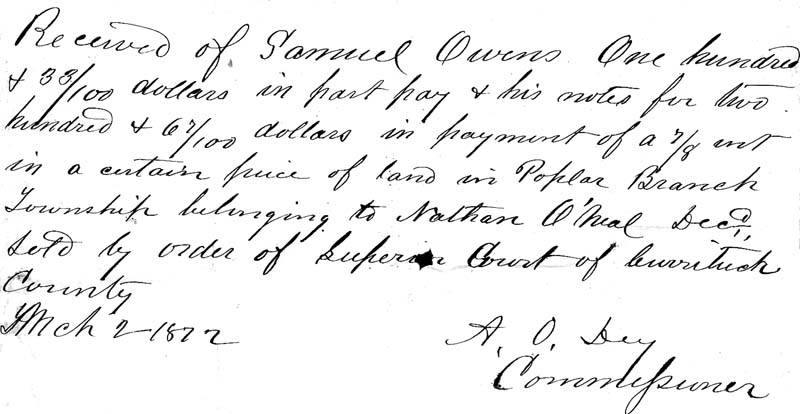 Received of Samuel Owens One hundred
& 33/100 dollars in part pay & his notes for two
hundred & 67/100 dollars in payment of a 7/8 int
in a certain piece of land in Poplar Branch
Township belonging to Nathan O'Neal Decd,
Sold by order of Superior Court of Currituck
County
Mch 2 1872
A. O. Dey
Commissioner